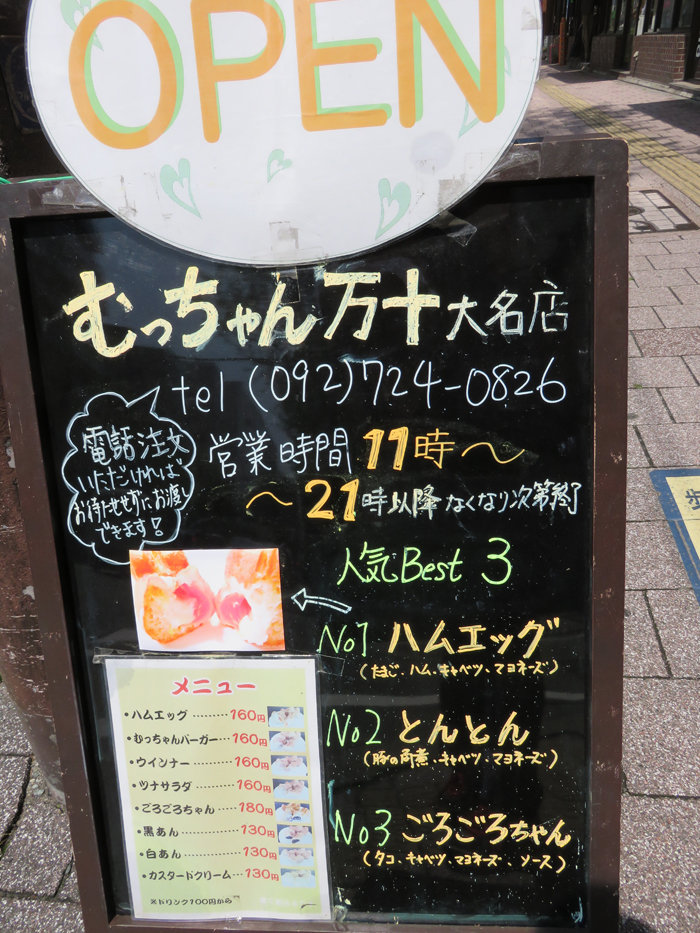 OPEN
むっちゃん万十 大名店
tel (092)724-0826
電話注文
いただければ
お待たせせずにお渡し
できます!
営業時間 11時〜
〜21時以降なくなり次第終了
人気Best 3
No1 ハムエッグ
(たまご、ハム、キャベツ、マヨネーズ)
No2 とんとん
(豚の角煮、キャベツ、マヨネーズ)
No3 ごろごろちゃん
(タコ、キャベツ、マヨネーズ、ソース)
メニュー
・ハムエッグ………160円
・むっちゃんバーガー…160円
・ウインナー………160円
・ツナサラダ………160円
・ごろごろちゃん……180円
・黒あん…………130円
・白あん…………130円
・カスタードクリーム…130円
※ドリンク100円から
歩